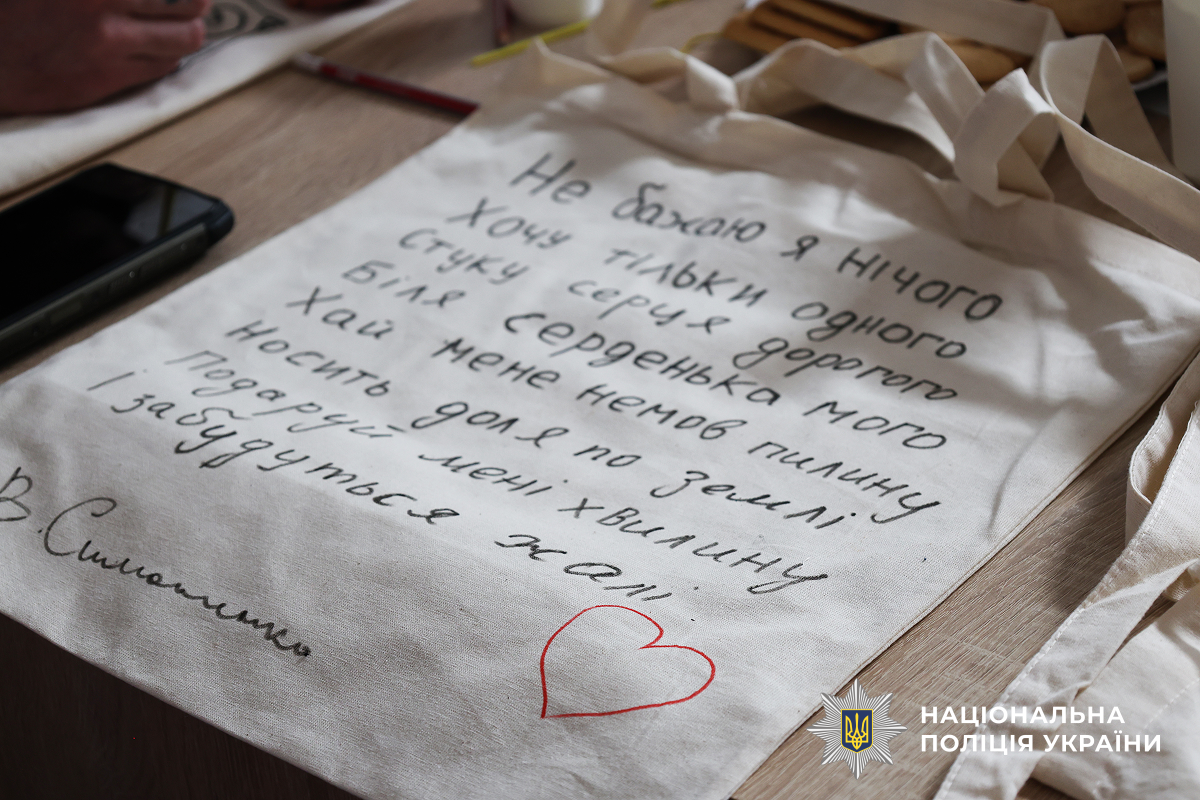 Не бажаю я нічого
Хочу тільки одного
Стуку серця дорогого
Біля серденька мого
Хай мене немов пилину
Носить доля по землі
Подаруй мені хвилину
І забудуться жалі
В. Симоненко
НАЦІОНАЛЬНА
ПОЛІЦІЯ УКРАЇНИ